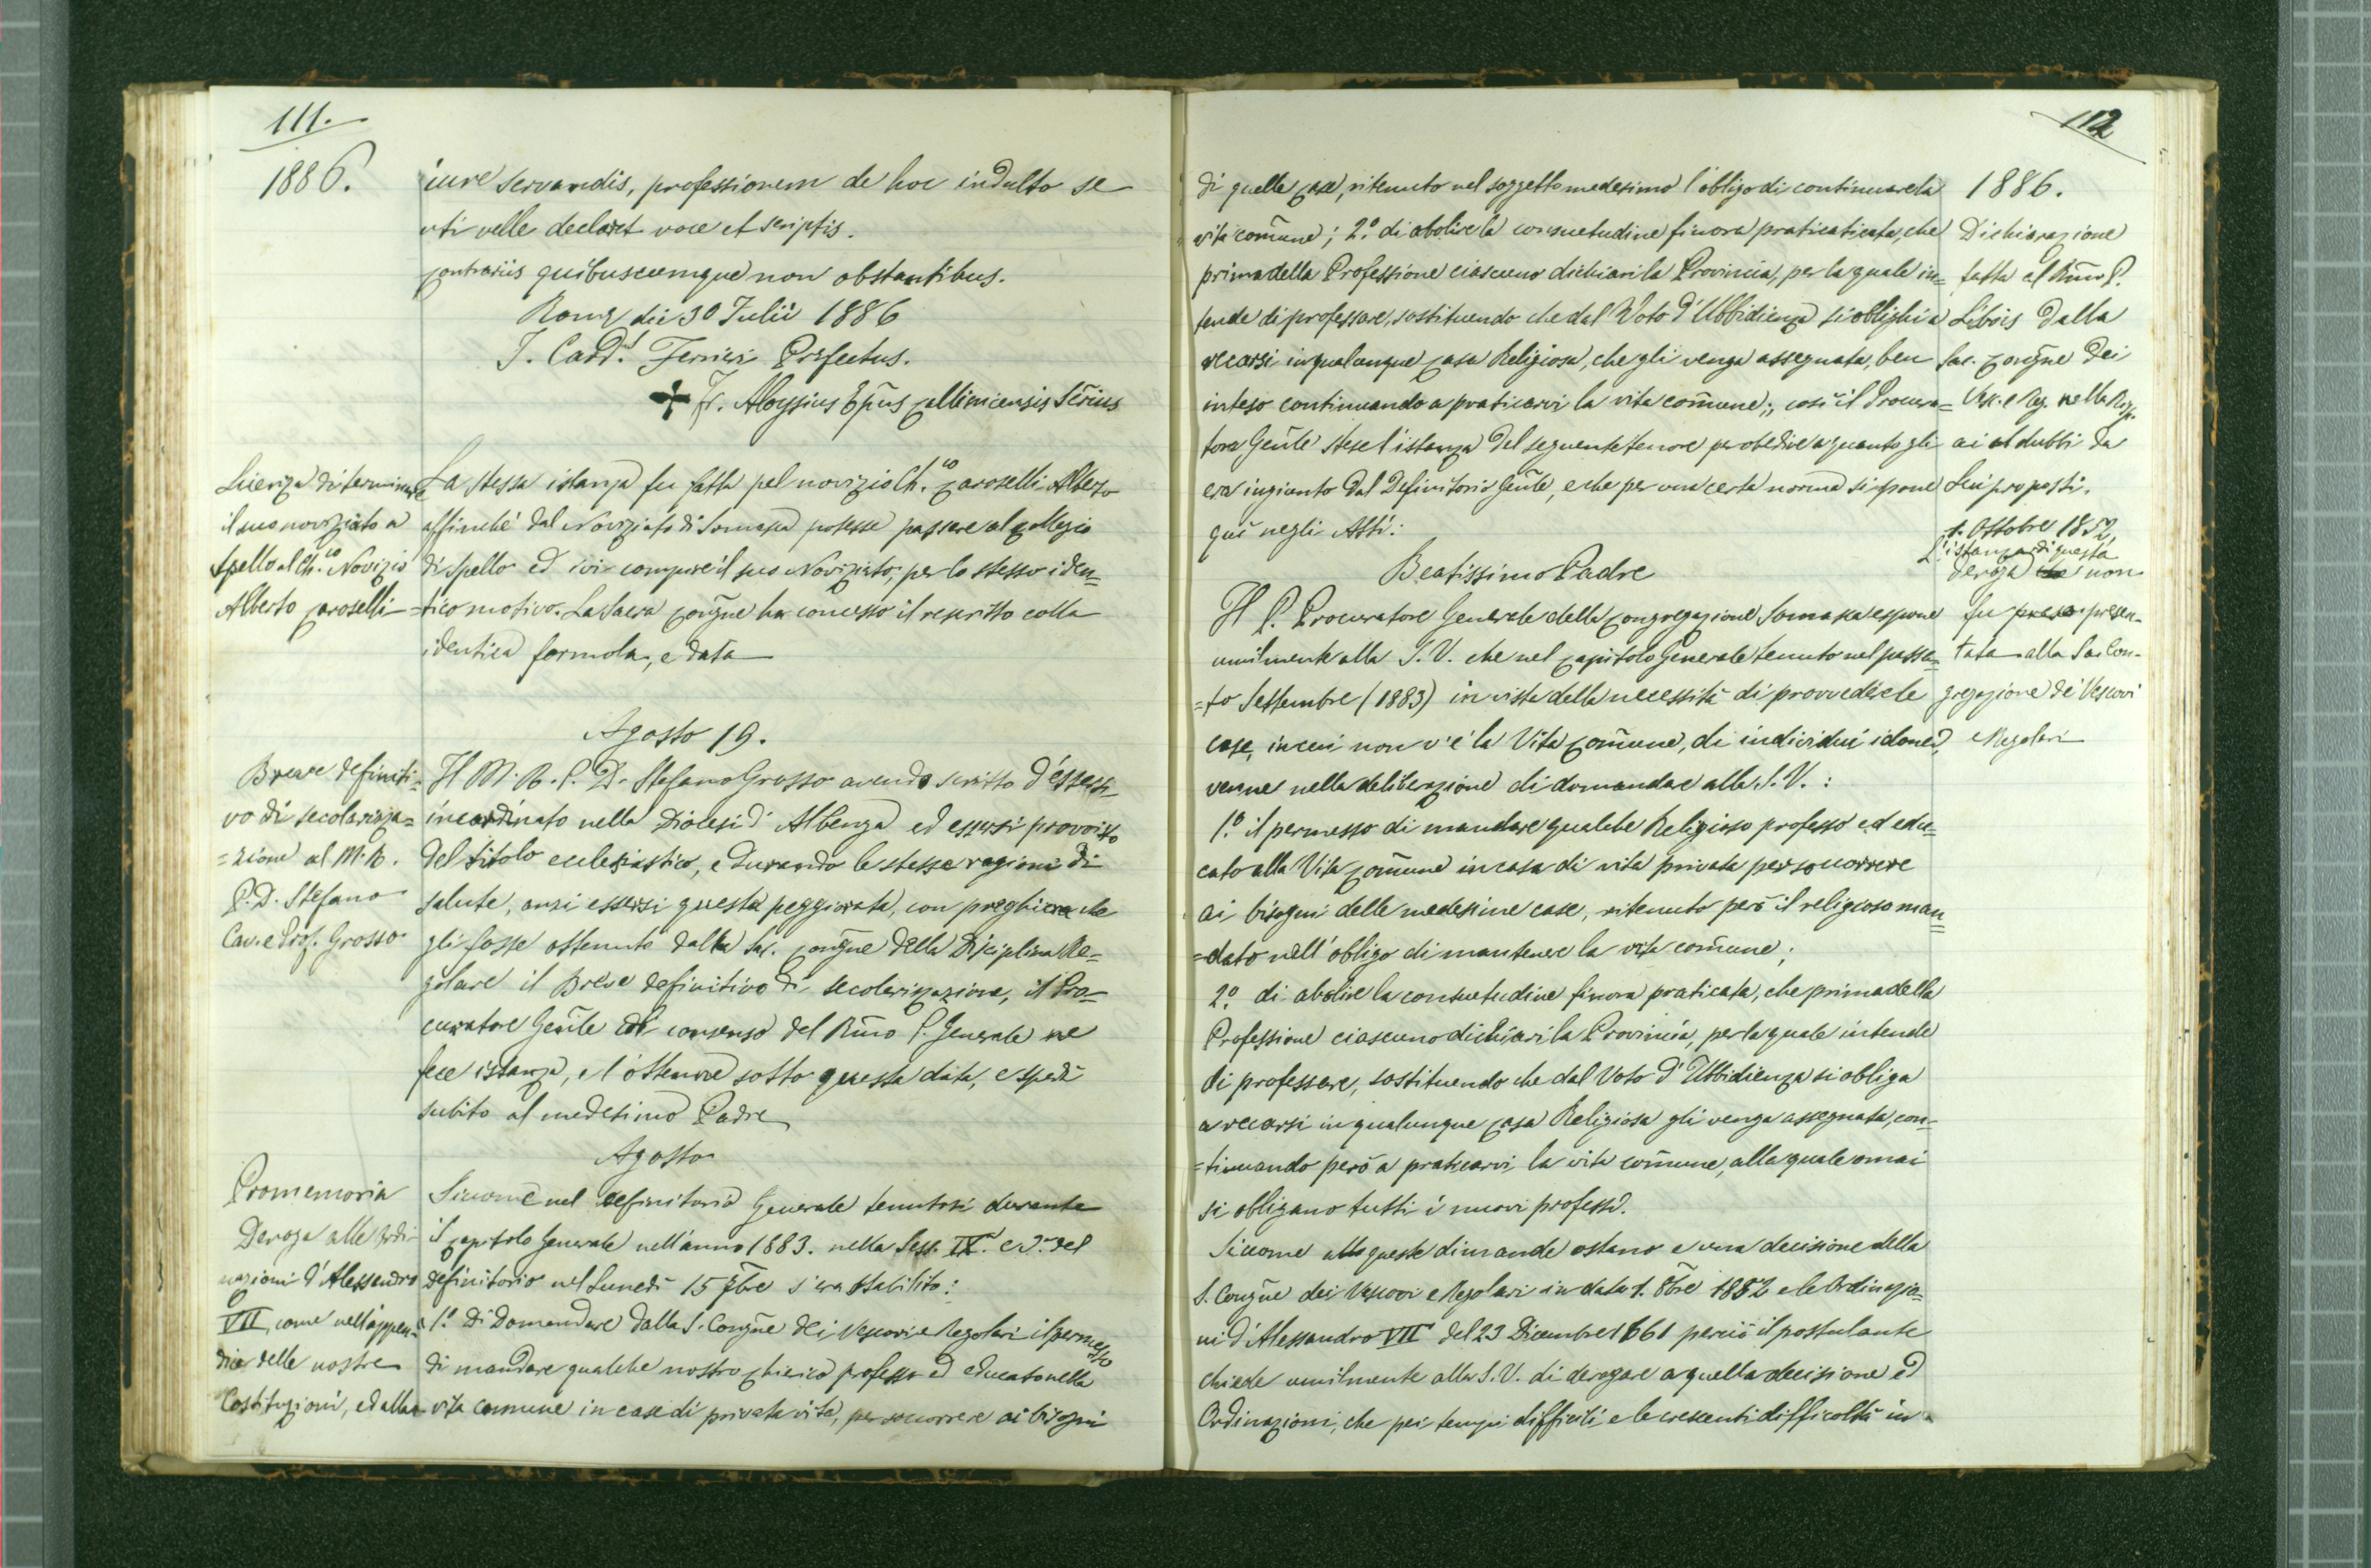 111.
1886.
iure servandis, professionem de hoc indulto se
uti velle declaret voce et scriptis.
Contrariis quibuscumque non obstantibus.
Romæ die 30 Julii 1886
J. Card.l Ferrieri Præfectus.
✠ Fr. Aloysius Epũs Callinicensis Secrius
Licenza di terminare
il suo noviziato a
Spello al Ch.co Novizio
Alberto Caroselli
La stessa istanza fu fatta pel novizio Ch.co Caroselli Alberto
affinchè dal Noviziato di Somasca potesse passare al Collegio
di Spello ed ivi compire il suo Noviziato, per lo stesso iden=
tico motivo. La Sacra Congñe ha concesso il rescritto colla
identica formola, e data
Agosto 19.
Breve definiti=
vo di secolarizza=
=zione al M. R.
P. D. Stefano
Cav. e Prof. Grosso
Il M. R. P. D. Stefano Grosso avendo scritto d'essersi
incardinato nella Diocesi d'Albenga ed essersi provvisto
del titolo ecclesiastico, e durando le stesse ragioni di
salute, anzi essersi questa peggiorata, con preghiera che
gli fosse ottenuto dalla sac. Congñe della Disciplina Re=
golare il Breve definitivo di secolarizzazione, il Pro=
curatore Genĩle col consenso del Rm̃o P. Generale ne
fece istanza, e l'ottenne sotto questa data, e spedì
subito al medesimo Padre
Agosto
Promemoria
Deroga alle Ordi=
nazioni d'Alessandro
VII, come nell'appen=
dice delle nostre
Costituzioni, ed alla
Siccome nel definitorio Generale tenutosi durante
il Capitolo Generale nell'anno 1883. nella Sess. IX. e 5.a del
definitorio nel Lunedì 15 7bre s'era stabilito:
1.o Di domandare dalla S. Congñe dei Vescovi e Regolari il permesso
di mandare qualche nostro chierico professo ed educato nella
vita comune in case di privata vita, per soccorrere ai bisogni
112
di quelle case, ritenuto nel soggetto medesimo l'obligo di continuare la
vita com̃une; 2.o di abolire la consuetudine finora praticaticata, che
prima della Professione ciascuno dichiari la Provincia, per la quale in=
tende di professare, sostituendo che dal Voto d'Ubbidienza si oblighi a
recarsi in qualunque casa Religiosa, che gli venga assegnata, ben
inteso continuando a praticarvi la vita com̃une;, così il Procura=
tore Genĩle stese l'istanza del seguente tenore per obedire a quanto gli
era ingiunto dal Definitorio Genĩle, e che per una certa norma si espone
qui negli Atti:
1886.
Dichiarazione
fatta al Rm̃o P.
Libois dalla
Sac. Congñe dei
Vesc. e Reg. nella Risp.
ai at dubbi da
Lui proposti.
1. Ottobre 1852,
L'istanza di questa
deroga che non
fu presa presen-
tata alla Sac. Con-
gregazione de' Vescovi
e Regolari
Beatissimo Padre
Il P. Procuratore Generale della Congregazione Somasca espone
umilmente alla S. V. che nel Capitolo Generale tenuto nel passa=
=to Settembre (1883) in vista della necessità di provvedere le
case, in cui non v'è la Vita Com̃une, di individui idonei,
venne nella deliberazione di domandare alla S. V.:
1.o il permesso di mandare qualche Religioso professo ed edu=
cato alla Vita Com̃une in casa di vita privata per soccorrere
ai bisogni delle medesime case, ritenuto però il religioso man=
=dato nell'obligo di mantenere la vita com̃une;
2.o di abolire la consuetudine finora praticata, che prima della
Professione ciascuno dichiari la Provincia, per la quale intende
di professare, sostituendo che dal Voto d'Ubbidienza si obliga
a recarsi in qualunque casa Religiosa gli venga assegnata, con=
=tinuando però a praticarvi la vita com̃une, alla quale omai
si obligano tutti i nuovi professi.
Siccome alle queste dimande ostano e una decisione della
S. Congñe dei Vescovi e Regolari in data 1. 8bre 1852 e le Ordinazio=
ni d'Alessandro VII del 23 Dicembre 1661 perciò il postulante
chiede umilmente alla S. V. di derogare a quella decisione ed
Ordinazioni, che pei tempi difficili e le crescenti difficoltà in=